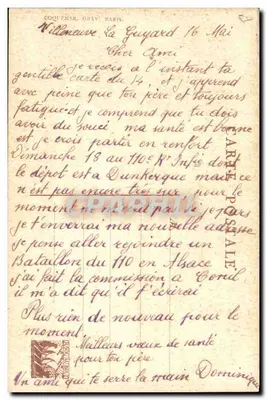 COQUEMER, GRAV. PARIS.
Villeneuve La Guyard 16 Mai
Cher Ami
je reçois a l'instant ta
gentille carte du 14, et j'apprend
avec peine que ton père et toujours
fatigué et je comprend que tu dois
avoir du souci, ma santé est bonne
et je crois partir en renfort
Dimanche 18 au 110e Rt Infie dont
le dépot est a Dunkerque mais ce
n'est pas encore très sur pour le
moment je ne suis pas je pars
je t'enverrai ma nouvelle adresse
je pense aller rejoindre un
Bataillon du 110 en Alsace
j'ai fait la commission a
il m'a dit qu'il t'écrirai
Plus rien de nouveau pour le
moment.
Meilleurs vœux de santé
pour ton père
Un ami que te serre la main Dominique
CARTE POSTALE